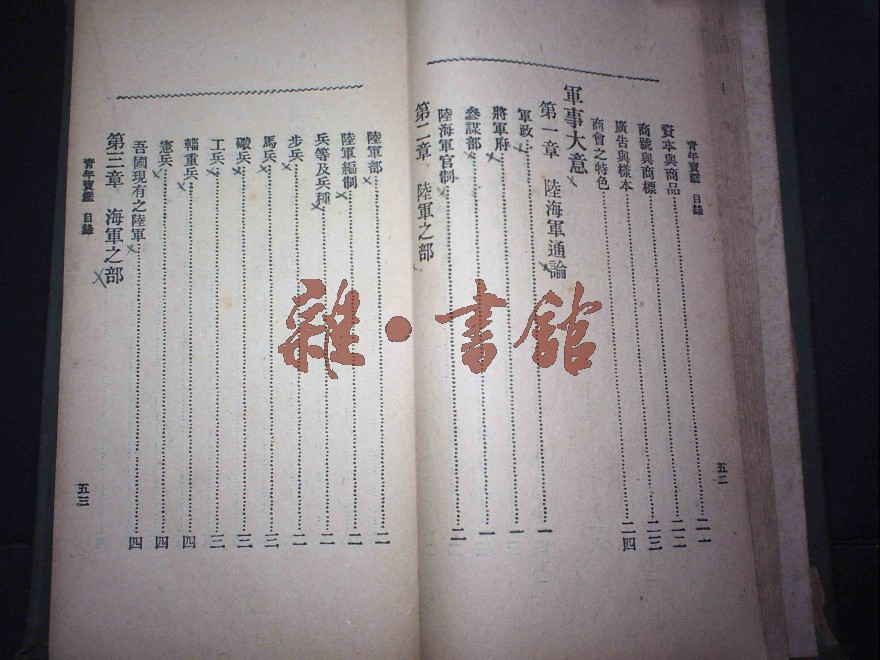 青年寶鑑 目錄
五二
資本與商品……二一
商號與商標……二二
廣告與樣本……二三
商會之特色……二四
軍事大意
第一章 陸海軍通論
軍政……一
將軍府……一
參謀部……一
陸海軍官制……二
第二章 陸軍之部
陸軍部……二
陸軍編制……二
兵等及兵種……二
步兵……二
馬兵……三
礮兵……三
工兵……三
輜重兵……四
憲兵……四
吾國現有之陸軍……四
第三章 海軍之部
青年寶鑑 目錄
五三
雜·書館